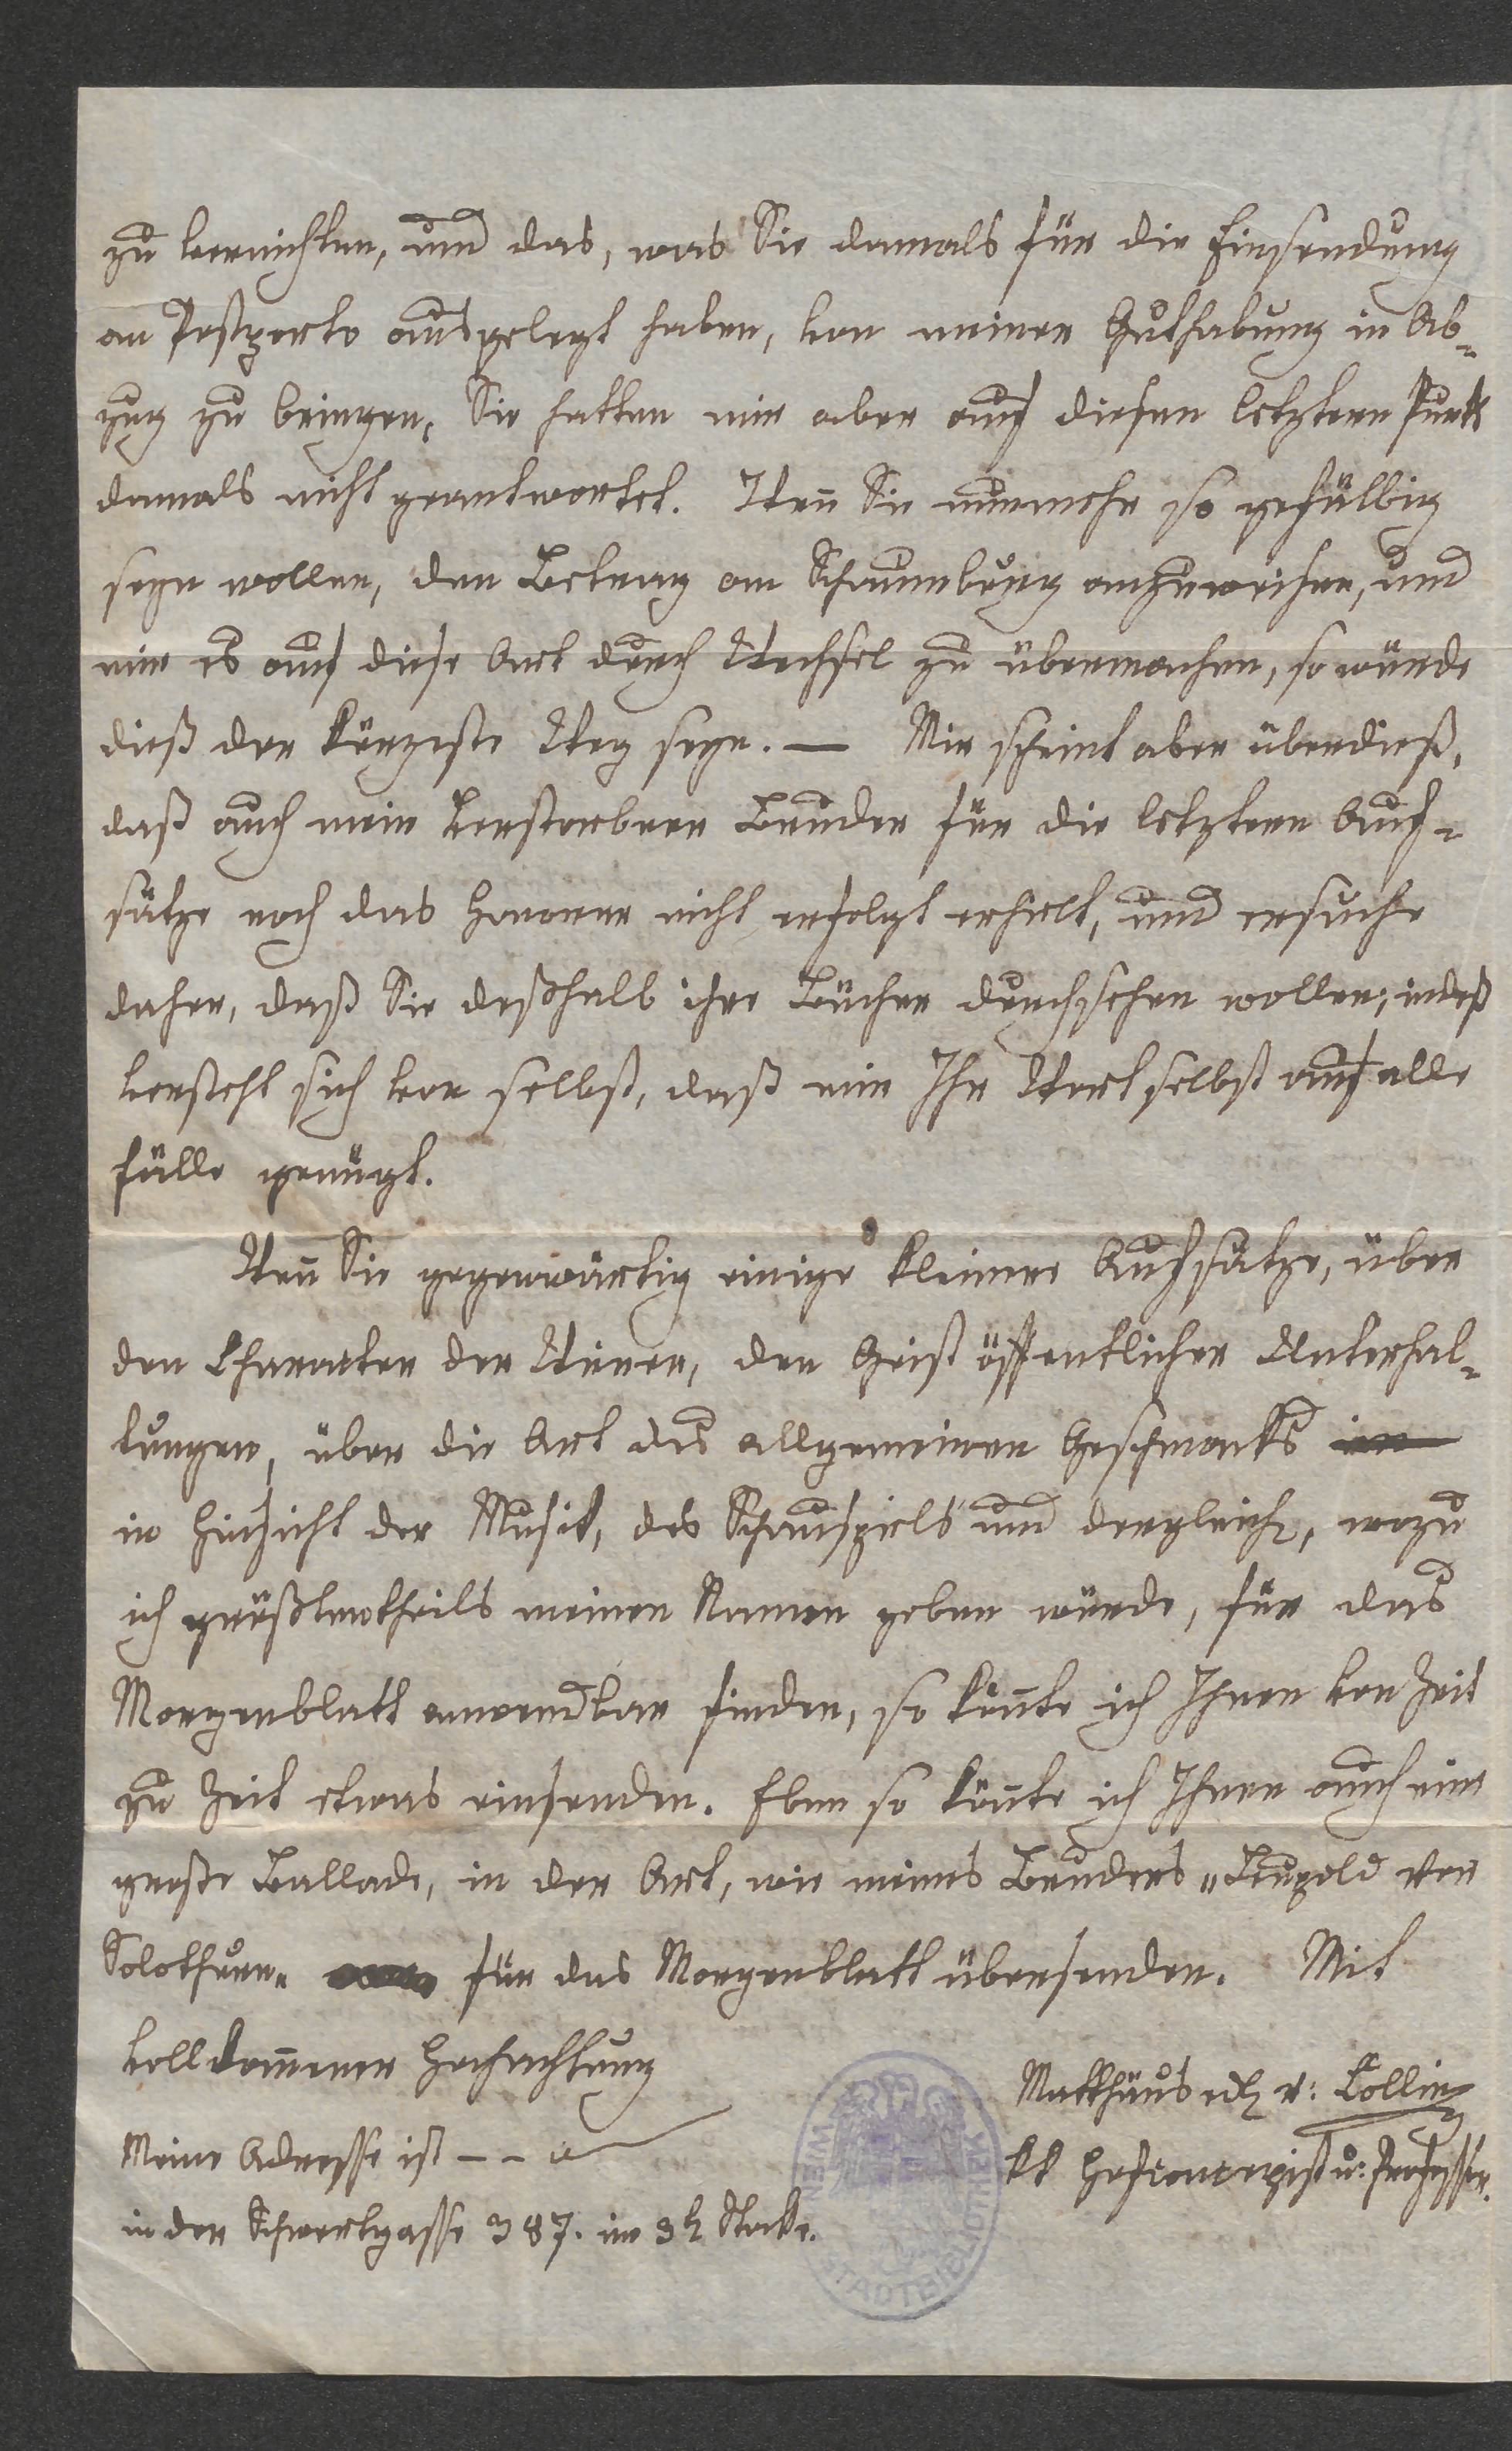 zu vernichten, und das, was Sie damals für die Einsendung
an Postporto ausgelegt haben, von meiner Guthabung in Ab-
zug zu bringen, Sie hatten mir aber auf diesen letztern Punkt
damals nicht geantwortet. Wen̄ Sie nunmehr so gefällig
seyn wollen, den Betrag an Schaumburg anzuweisen, und
mir es auf diese Art durch Wechsel zu übermachen, so würde
dieß der kürzeste Weg seyn. — Mir scheint aber überdieß,
daß auch mein verstorbner Bruder für die letztern Auf-
sätze noch das Honorar nicht erfolgt erhielt, und ersuche
daher, daß Sie deßhalb ihre Bücher durchsehen wollen; indeß
versteht sich von selbst, daß mir Ihr Wort selbst auf alle
Fälle genügt.
Wen̄ Sie gegenwärtig einige kleinere Aufsätze, über
den Charakter der Wiener, den Geist öffentlicher Unterhal-
tungen, über die Art des allgemeinen Geschmacks
in Hinsicht der Musik, des Schauspiels und dergleich., wozu
ich größtentheils meinen Namen geben würde, für das
Morgenblatt anwendbar finden, so kön̄te ich Ihnen von Zeit
zu Zeit etwas einsenden. Eben so kön̄te ich Ihnen auch eine
große Ballade, in der Art, wie meines Bruders „Leupold von
Solothurn“ für das Morgenblatt übersenden. Mit
vollkom̄ener Hochachtung
Matthäus v: Collin
kk Hofconcepist u: Professor.
Meine Adresse ist - -
in der Schwertgasse 387. im 3t Stocke.
WIEN STADTBIBLIOTHEK